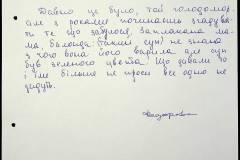 Давно це було, той голодомор,
але з роками починаєш згадува-
ти те що забулося, заплакана ма-
ма, баланда (такий суп) не знаю
з чого вона його варила але суп
був зеленого цвета. Що давали то
і їли більше не проси все одно не
дадуть.